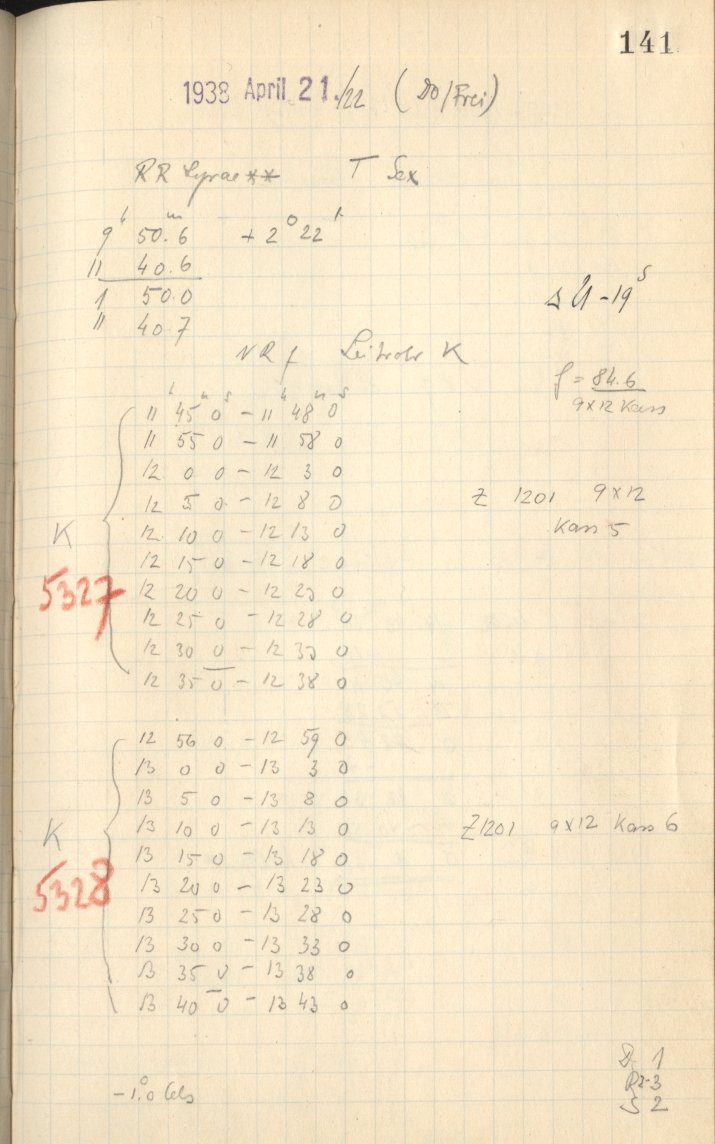 141
1938 April 21./22 (Do/Frei)
RR Lyrae ** T Sex
9h 50m.6 +2° 22'
11 40.6
1 50.0
11 40.7
Δ U -19s
NRf Leitrohr K
f = 84.6
9x12 Kass
11h 45m 0s - 11h 48m 0s
11 55 0 - 11 58 0
12 0 0 - 12 3 0
12 5 0 - 12 8 0
Z 1201 9x12
Kass 5
12 10 0 - 12 13 0
K
12 15 0 - 12 18 0
5327
12 20 0 - 12 23 0
12 25 0 - 12 28 0
12 30 0 - 12 33 0
12 35 0 - 12 38 0
12 56 0 - 12 59 0
13 0 0 - 13 3 0
13 5 0 - 13 8 0
13 10 0 - 13 13 0
K
Z1201 9x12 Kass 6
13 15 0 - 13 18 0
5328
13 20 0 - 13 23 0
13 25 0 - 13 28 0
13 30 0 - 13 33 0
13 35 0 - 13 38 0
13 40 0 - 13 43 0
D 1
R 2-3
S 2
-1°.0 Cels